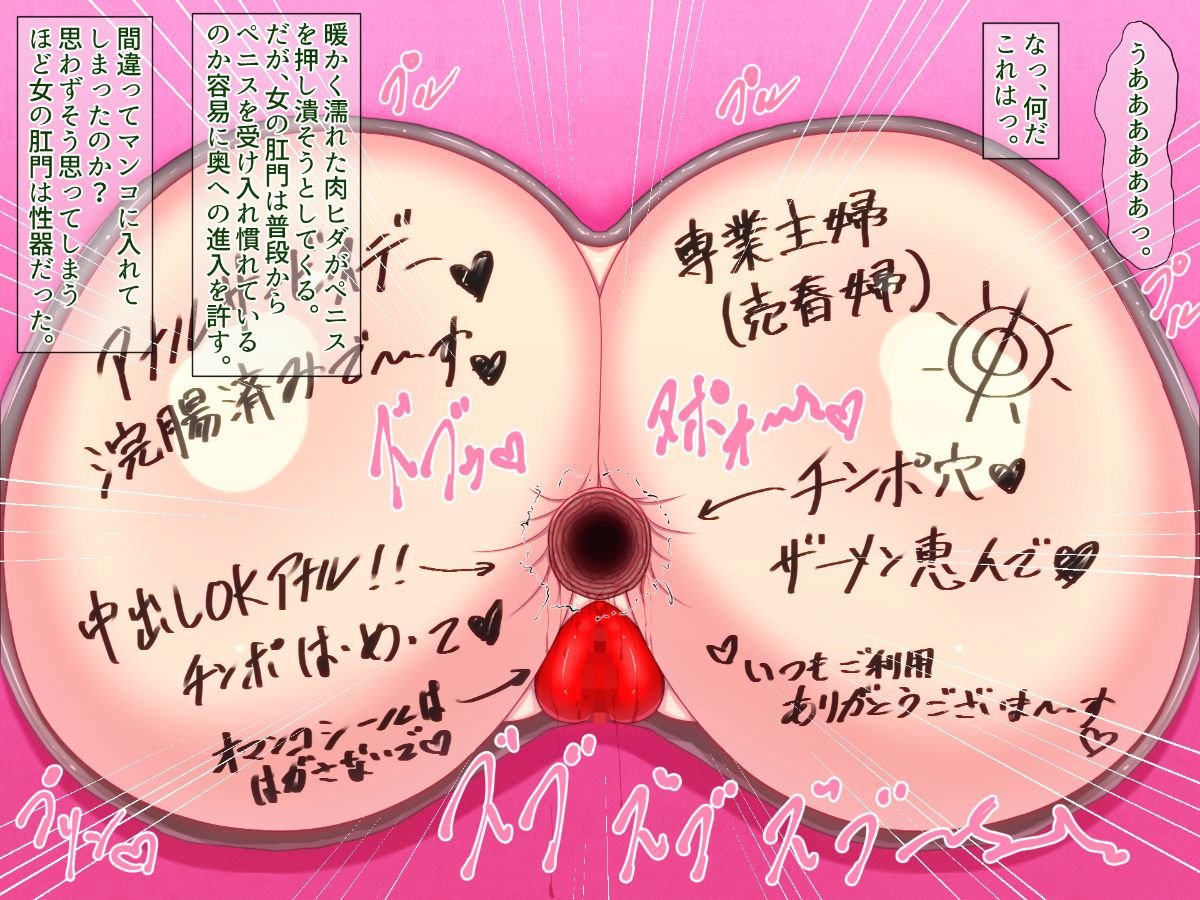 うああああああっ。
なっ、何だ
これはっ。
暖かく濡れた肉ヒダがペニス
を押し潰そうとしてくる。
だが、女の肛門は普段から
ペニスを受け入れ慣れている
のか容易に奥への進入を許す。
間違ってマンコに入れて
しまったのか？
思わずそう思ってしまう
ほど女の肛門は性器だった。
プル
プル
プル
専業主婦
(売春婦)
デー♥
アナル
浣腸済みで〜す♥
ドブッ♡
チンポ穴♥
ザーメン恵んで♥
中出しOKアナル!!
チンポは・め・て♥
♡いつもご利用
ありがとうございま〜す♡
オマンコシールは
はがさないで♡
ズブ
ズブ
ズブ〜